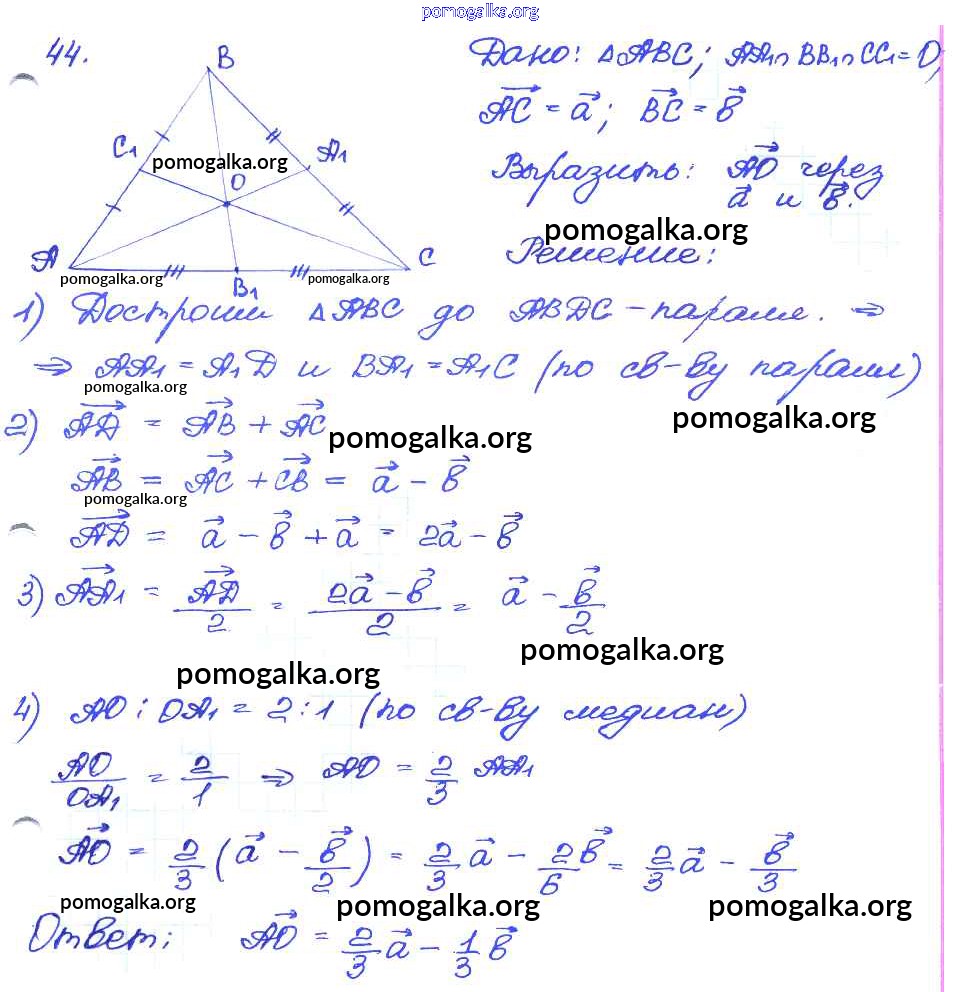 pomogalka.org
44.
B
C₁ A₁
pomogalka.org
O
A C
B₁
pomogalka.org pomogalka.org
Дано: △ABC; AA₁∩BB₁∩CC₁=O,
AC⃗ = a⃗; BC⃗ = b⃗
Выразить: AO⃗ через
a⃗ и b⃗.
pomogalka.org
Решение:
1) Достроим △ABC до ABDC – паралле. ⇒
⇒ AA₁ = A₁D и BA₁ = A₁C (по св-ву паралл)
pomogalka.org
pomogalka.org
2) AD⃗ = AB⃗ + AC⃗
pomogalka.org
AB⃗ = AC⃗ + CB⃗ = a⃗ – b⃗
pomogalka.org
AD⃗ = a⃗ – b⃗ + a⃗ = 2a⃗ – b⃗
3) AA₁⃗ = AD⃗/2 = (2a⃗ – b⃗)/2 = a⃗ – b⃗/2
pomogalka.org
pomogalka.org
4) AO : OA₁ = 2:1 (по св-ву медиан)
AO/OA₁ = 2/1 ⇒ AO = 2/3 AA₁
AO⃗ = 2/3 (a⃗ – b⃗/2) = 2/3 a⃗ – 2b⃗/6 = 2/3 a⃗ – b⃗/3
pomogalka.org pomogalka.org pomogalka.org
Ответ: AO⃗ = 2/3 a⃗ – 1/3 b⃗